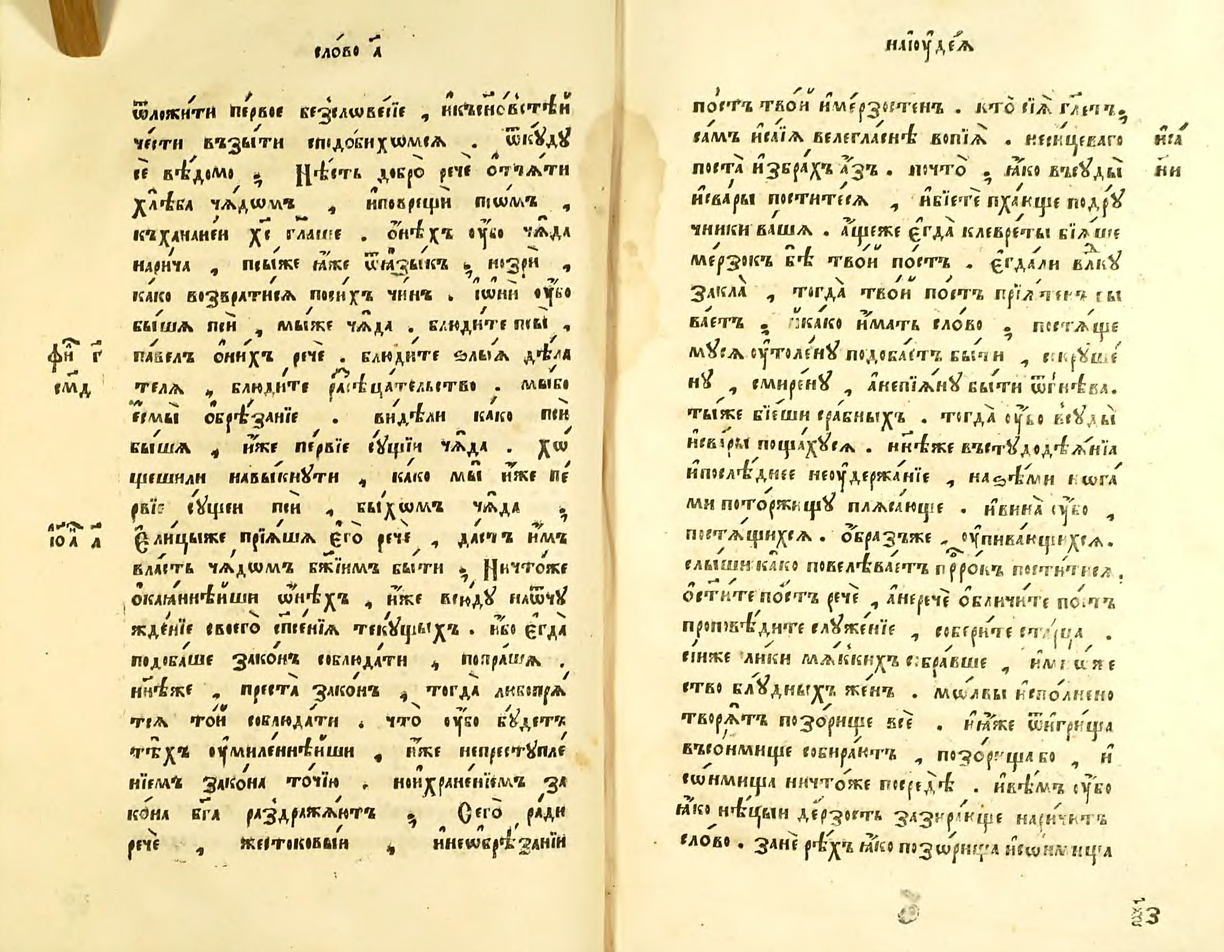 сло́во а҃
ѿложи́ти пе́рвое безсло́весїе , и҆къ сы́новстѣй
че́сти възы́ти сподо́бихѡмсѧ . ѿкꙋдꙋ
се̏ вѣ́домо ; Нѣ́сть добро̀ рече̏ ѿѧ́ти
хлѣ́ба чѧ́дѡмъ , и҆поврещѝ псѡ́мъ ,
къ ханане́и хс҃ гл҃аше . ѻ҆нѣ́хъ ᲂу҆̀бо чѧ́да
нарича̀ , псы̏же ꙗ҆̀же ѿꙗзы́къ ; но зрѝ ,
ка́ко возврати́сѧ по си́хъ чи́нъ . і҆ѡ҆нѝ ᲂу҆̀бо
бы́шѧ псѝ , мы́же чѧ́да . блюди́те псы̀ ,
фи҃ г҃
па́велъ ѻ҆ни́хъ рече̏ . блюди́те ѕлы́ѧ дѣ́ла
см҃д
телѧ , блюди́те разсѣца́тельство . мы́бо
є҆смы̀ ѻ҆брѣ́занїе . ви́дѣли ка́ко псѝ
бы́шѧ , и҆̀же пе́рвїе сꙋ́щїи чѧ́да . Хѡ
щешили навы́кнꙋти , ка́ко мы̀ и҆̀же пе́
рвїе сꙋ́щеи псѝ , бы́хѡмъ чѧ́да ;
іѡа҃ а҃
Є҆ли́цыже прїѧ́шѧ є҆го̀ рече̏ , да́стъ и҆́мъ
вла́сть чѧ́дѡмъ бж҃їимъ бы́ти ; Ничто́же
ѻ҆каѧ́ннѣйши ѡ҆нѣ́хъ , и҆̀же всю́дꙋ на ѿчꙋ
жде́нїе своего̀ сп҃се́нїѧ текꙋ́щыхъ . и҆́бо є҆гда̀
подоба́ше зако́нъ соблюда́ти , попра́шѧ .
нн҃ѣже , преста̀ зако́нъ , тогда̀ любопрѧ́
тсѧ то́й соблюда́ти . что̀ ᲂу҆̀бо бꙋ́детъ
тѣ́хъ ᲂу҆миле́ннѣйши , и҆̀же непрестꙋпле́
нїемъ зако́на то́чїю , но и҆хране́нїемъ за
ко́на бг҃а раздражѧ́ютъ ; Сего̀ ра́ди
рече̏ , жестоковы́йи , и҆неѡбрѣ́занїи
на і҆ᲂу҆де́ѧ
по́стъ тво́й и҆ме́рзостенъ . кто̀ сїѧ̀ гл҃етъ ;
са́мъ и҆са́їѧ велегла́снѣ вопїѧ̀ . неси́цеваго
и҆са́
поста̀ и҆збра́хъ а҆́зъ . почто̀ ; ꙗ҆́ко въ сꙋды̀
ни
и҆сва́ры пости́тесѧ , и҆бїе́те пха́юще подрꙋ́
чники ва́шѧ . а҆́щеже є҆гда̀ клевре́ты бїѧ́ше
ме́рзокъ бѣ̀ тво́й по́стъ . є҆гда́ли вл҃кꙋ
закла̀ , тогда̀ тво́й по́стъ прїѧ́тенъ бы
ва́етъ ; и҆ка́ко и҆́мать сло́во ; постѧ́ще
мꙋсѧ ᲂу҆толе́нꙋ подоба́етъ бы́ти , сокрꙋше́
нꙋ , смире́нꙋ , а҆непїѧ́нꙋ бы́ти ѿгнѣ́ва.
ты́же бїе́ши срабныхъ . тогда̀ ᲂу҆̀бо в сꙋды̀
и҆сва́ры поща́хꙋсѧ . нн҃ѣже въстꙋдодѣѧ́нїа
и҆послѣ́днее неᲂу҆держа́нїе , наѕѣ́ми нѡга́
ми по то́ржищꙋ плѧса́юще . и҆вина̀ ᲂу҆̀бо ,
постѧ́щихсѧ . ѻ҆́бразъже , ᲂу҆пива́ющихсѧ.
слы́ши ка́ко повелѣва́етъ прⷪ҇ро́къ пости́тисѧ.
ѻ҆с҃ти́те по́стъ рече̏ , а҆нерече̏ ѻ҆бличи́те по́стъ
проповѣ́дите слꙋже́нїе , собери́те ста́рца .
сїи́же ли́ки мѧ́кихъ собра́вше , и҆мно́же
ство блꙋ́дныхъ же́нъ . мѡлвы̀ и҆спо́лнено
творѧ́тъ позо́рище все̏ . и҆ꙗ҆̀же ѿи҆гри́ща
въ со́нмище собира́ютъ , позо́рища бо , и҆
со́нмища ничто́же посредѣ̀ . и҆вѣ́мъ ᲂу҆̀бо
ꙗ҆́ко нѣ́цыи де́рзость зазира́юще нарича́тъ
сло́во . зане̏ рѣ́хъ ꙗ҆́ко позѡ́рища и҆со́нмища